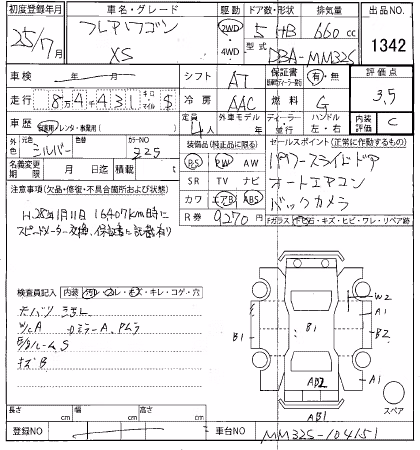 初度登録年月 車名・グレード 駆動 ドア数・形状 排気量 出品NO.
25/7月 フレアワゴン 2WD 5 HB 660cc 1342
XS 4WD 型式 DBA-MM32S
車検 年 月 シフト AT 保証書 有・無 評価点
走行 8万4千431 キロ マイル $ 冷房 AAC 燃料 G 3.5
車歴 自家用/レンタ・事業用( ) 定員 4人 外車モデル ディーラー 並行 ハンドル 左・右 内装 C
外色 シルバー 色替 カラーNO 325 装備品(純正品に限る) セールスポイント(正常に作動するもの)
名義変更期限 月 日 積載 t PS PW AW パワースライドドア
注意事項(欠品・修復・不具合箇所および状態) SR TV ナビ オートエアコン
H.28年1月11日 16407km時に カワ エアB ABS バックカメラ
スピードメーター交換、保証書に記載有り R券 9270円 Fガラス 石・キズ・ヒビ・ワレ・リペア跡
検査員記入 内装 汚レ・コレ・キズ・キレ・コゲ・穴
W2
A1
B1 B1 B2
A1
AB2
AB1
スペア
キズB
長さ cm 幅 cm 高さ cm
登録NO 車台NO MM32S-104151